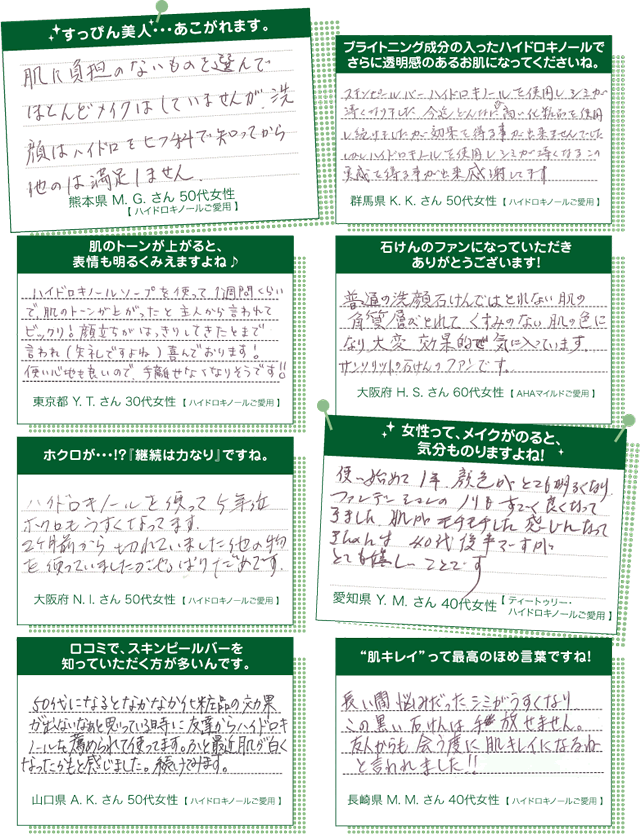 すっぴん美人･･･あこがれます。
肌に負担のないものを選んで
ほとんどメイクはしていませんが、洗
顔はハイドロをヒフ科で知ってから
他のは満足しません。
熊本県 M. G. さん 50代女性
【 ハイドロキノールご愛用 】
ブライトニング成分の入ったハイドロキノールで
さらに透明感のあるお肌になってくださいね。
スキンピールバーハイドロキノールを使用しシミが
薄くなりました 今迄どんなに高い化粧品を使用
し続けましたが効果を得る事が出来ませんでした
しかしハイドロキノールを使用しシミが薄くなるこの
実感を得る事が出来感謝してます
群馬県 K. K. さん 50代女性【 ハイドロキノールご愛用 】
肌のトーンが上がると、
表情も明るくみえますよね♪
ハイドロキノールソープを使って1週間くらい
で、肌のトーンが上がったと主人から言われて
ビックリ！顔立ちがはっきりしてきたとまで
言われ(失礼ですよね)喜んでおります！
使い心地も良いので、手離せなくなりそうです!!
東京都 Y. T. さん 30代女性【 ハイドロキノールご愛用 】
石けんのファンになっていただき
ありがとうございます！
普通の洗顔石けんではとれない肌の
角質層がとれて くすみのない肌の色に
なり大変 効果的で気に入っています。
サンソリットの石けんのファンです。
大阪府 H. S. さん 60代女性【 AHAマイルドご愛用 】
ホクロが･･･!?『継続は力なり』ですね。
ハイドロキノールを使って5年位
ホクロもうすくなってます。
2ケ月前から切れていました他の物
を使っていましたがやっぱりだめです。
大阪府 N. I. さん 50代女性【 ハイドロキノールご愛用 】
女性って、メイクがのると、
気分ものりますよね！
使い始めて1年、顔色がとても明るくなり
ファンデーションのノリもすごく良くなって
きました 肌がモチモチした感じになって
40代後半ですが
とても嬉しいことです
愛知県 Y. M. さん 40代女性【 ティートゥリー・
ハイドロキノールご愛用 】
口コミで、スキンピールバーを
知っていただく方が多いんです。
50代になるとなかなか化粧品の効果
が出ないなぁと思っている時に友達からハイドロキ
ノールを薦められて使ってます。ふと最近肌が白く
なったかもと感じました。続けてみます。
山口県 A. K. さん 50代女性【 ハイドロキノールご愛用 】
“肌キレイ”って最高のほめ言葉ですね！
長い間悩みだったシミがうすくなり
この黒い石けんは手放せません。
友人からも会う度に肌キレイになるね
と言われました!!
長崎県 M. M. さん 40代女性【 ハイドロキノールご愛用 】